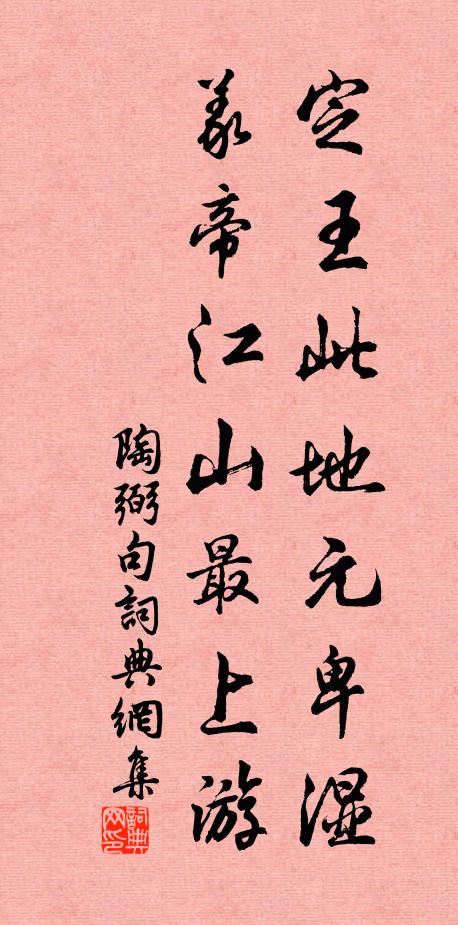 定王此地元卑湿
義帝江山最上游
陶弼句詞典網集
詞典网印